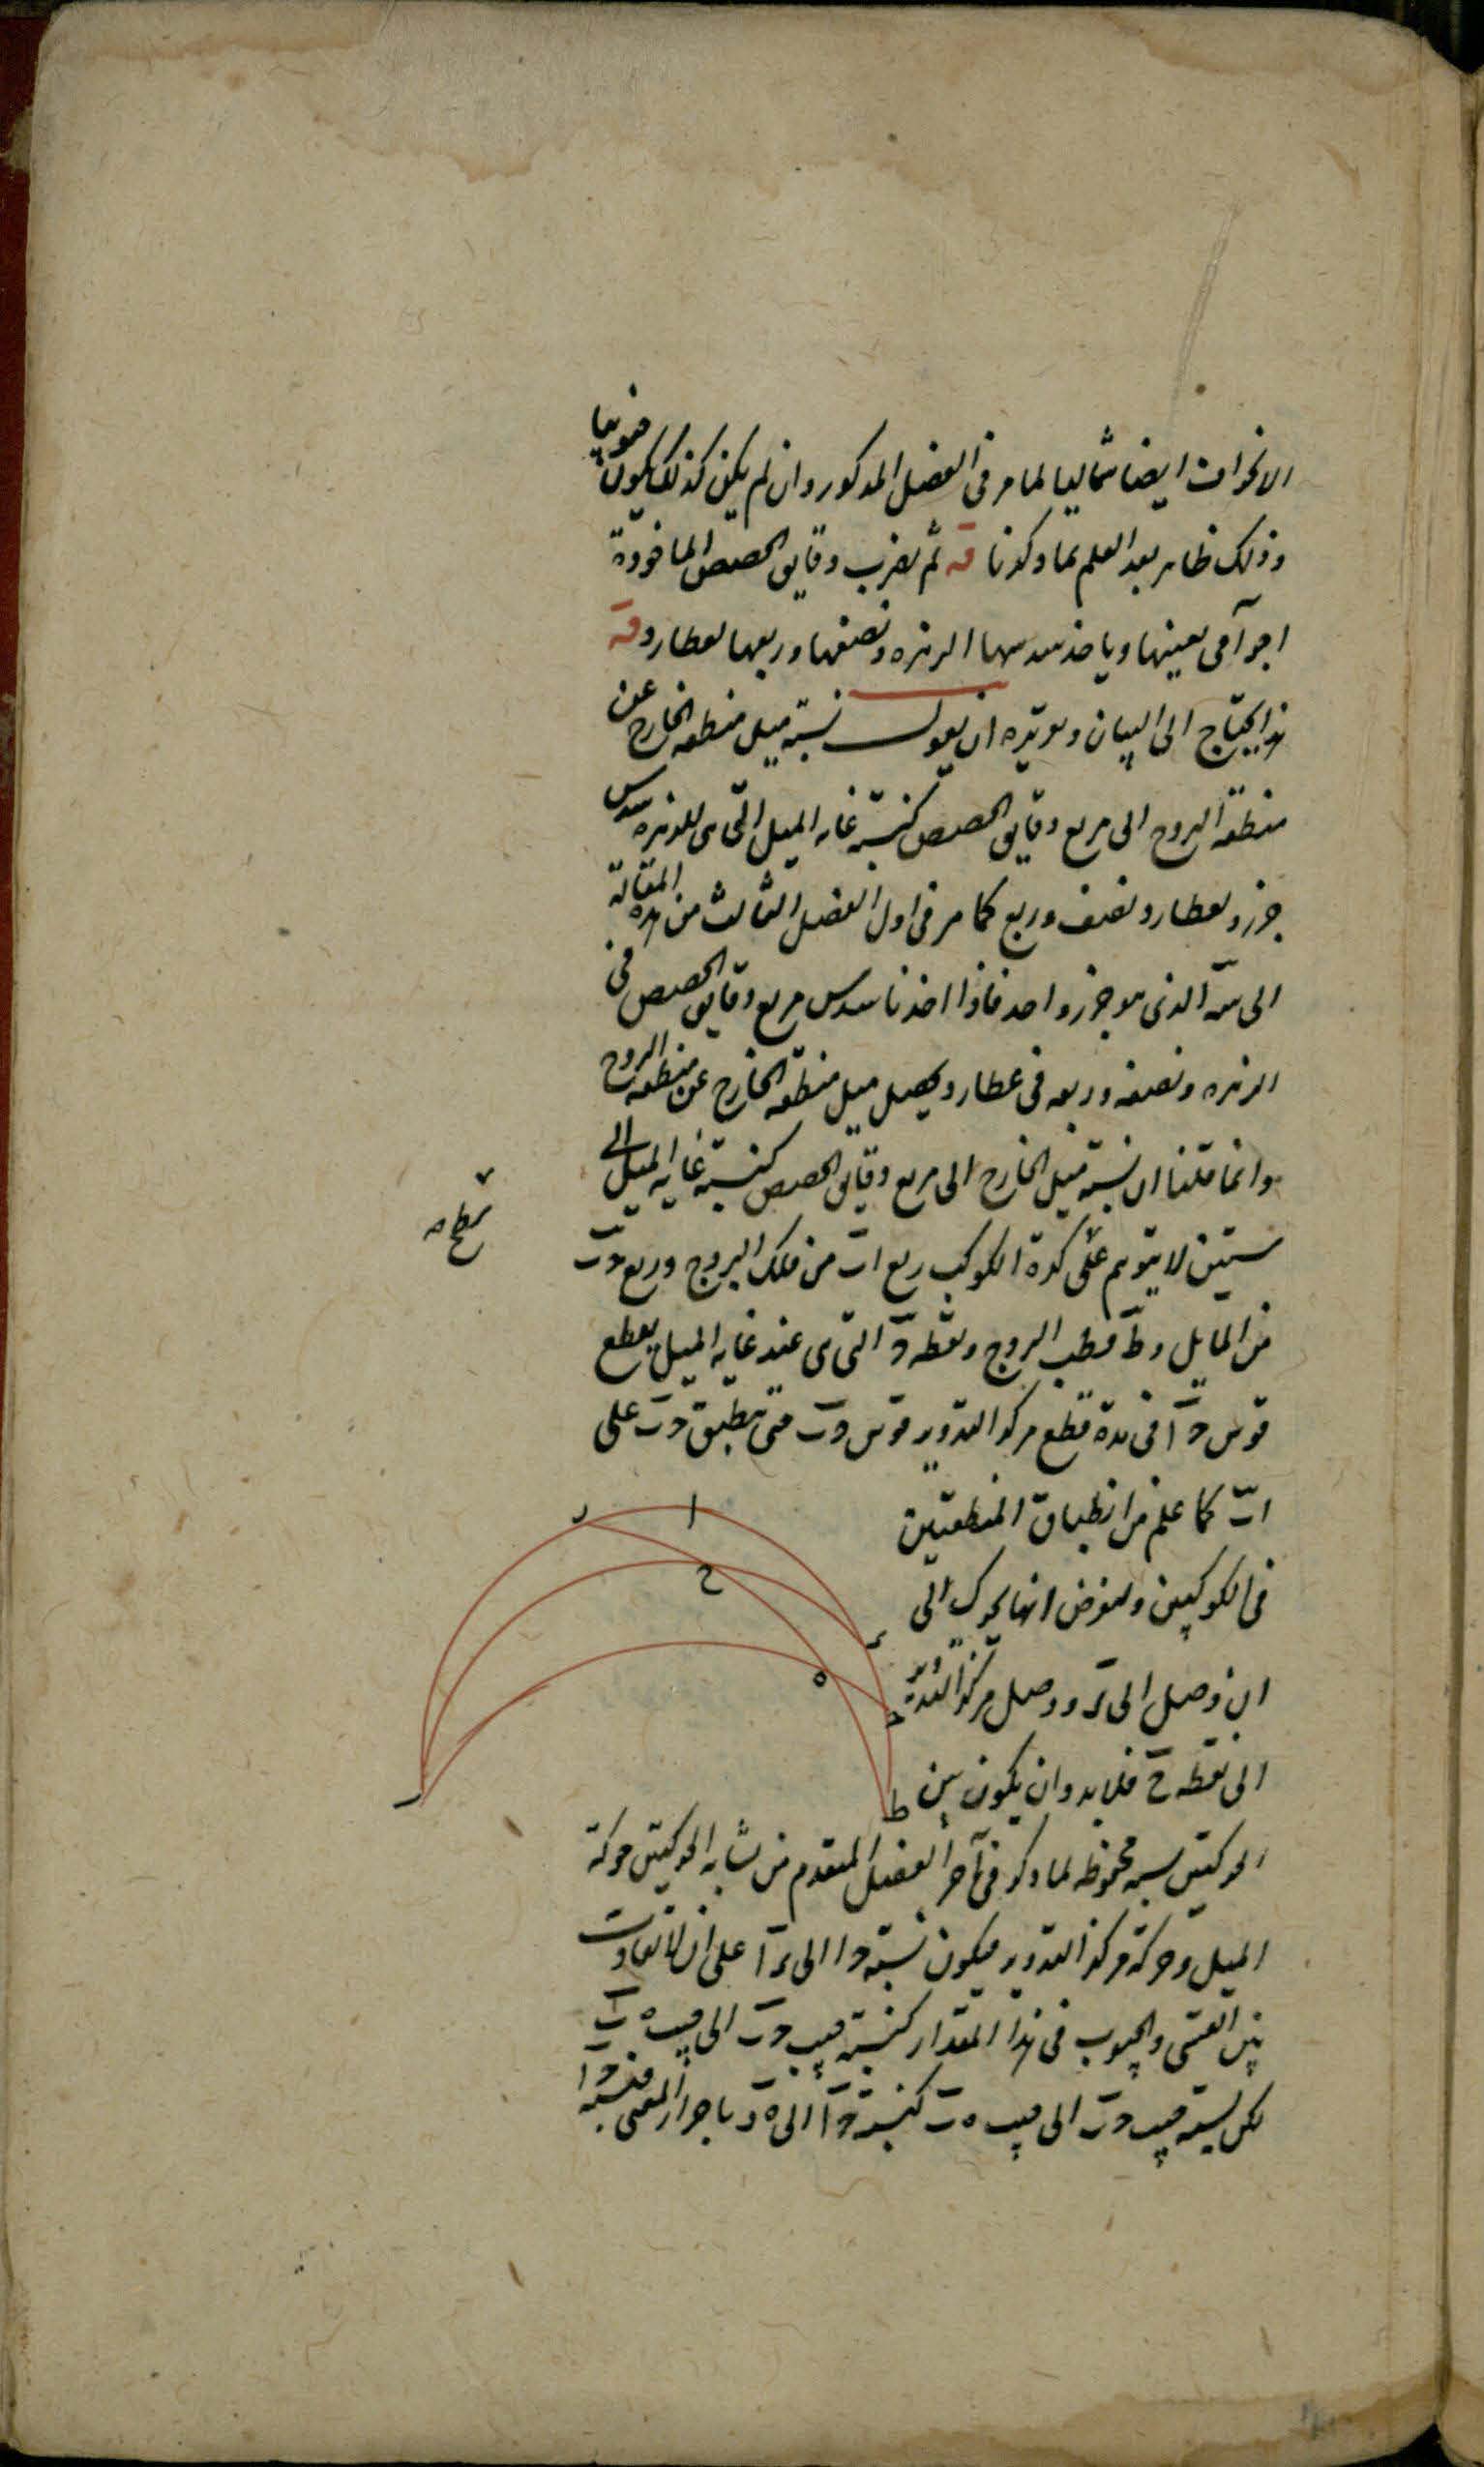 الانحراف ايضا شماليا لما مر فى الفصل المذكور وان لم يكن كذلك يكون جنوبيا
وذلك ظاهر بعد العلم بما ذكرنا قه ثم يضرب دقايق الحصص الماخوذة
اجزآ فى نفسها وياخذ سدسها الزهره ونصفها وربعها لعطارد قه
هذا يحتاج الى البيان وتقريره ان يقول نسبة ميل منطقه الخارج عن
منطقة البروج الى مربع دقايق الحصص كنسبة غايه الميل التى هى للزهره سدس
جزء ولعطارد نصف وربع كما مر فى اول الفصل الثالث من هذه المقالة
الى سه الذى هو جزء واحد فاذا اخذنا سدس مربع دقايق الحصص فى
الزهره ونصفه وربعه فى عطارد يحصل ميل منطقة الخارج عن منطقه البروج
وانما قلنا ان نسبة ميل الخارج الى مربع دقايق الحصص كنسبة غايه الميل الى
ستين لانا نتوهم على كرة الكوكب ربع اب من فلك البروج وربع حب
من المايل وط قطب البروج ونقطه ح التى هى عند غايه الميل يقطع
قوس ح ا فى مدة قطع مركز التدوير قوس حب حتى ينطبق حب على
اب كما علم من انطباق المنطقتين
فى الكوكبين ولنفرض انها تحرك الى
ان وصل الى ى ووصل مركز التدوير
الى نقطه ح فلا بد وان يكون بين
الحركتين نسبه محفوظه لما ذكر فى آخر الفصل المتقدم من تشابه الحركتين حركة
الميل وحركة مركز التدوير فيكون نسبة ح ا الى ى ا على ان لا تفاوت
بين القسى والجيوب فى هذا المقدار كنسبة جيب حب الى جيب ه ب
لكن نسبة جيب حب الى جيب ه ب كنسبة ح ا الى ه ر باجزاء المغنى فنسبة ح ا
ا
ر
ح
ى
ه
ح
ط
ب